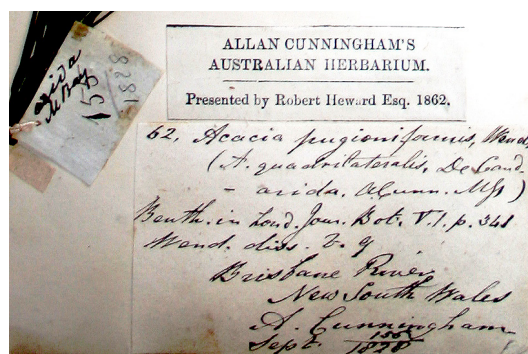 arida
M Bay
155
8281
ALLAN CUNNINGHAM'S
AUSTRALIAN HERBARIUM.
Presented by Robert Heward Esq. 1862.
62, Acacia pugioniformis, Wend,
(A. quadrilateralis, De Cand.
- arida, A Cunn. Mss)
Benth. in Lond. Jour. Bot. V.1. p. 341
Wend. diss. t. 9
Brisbane River
New South Wales
A. Cunningham
Sept. 155/1828